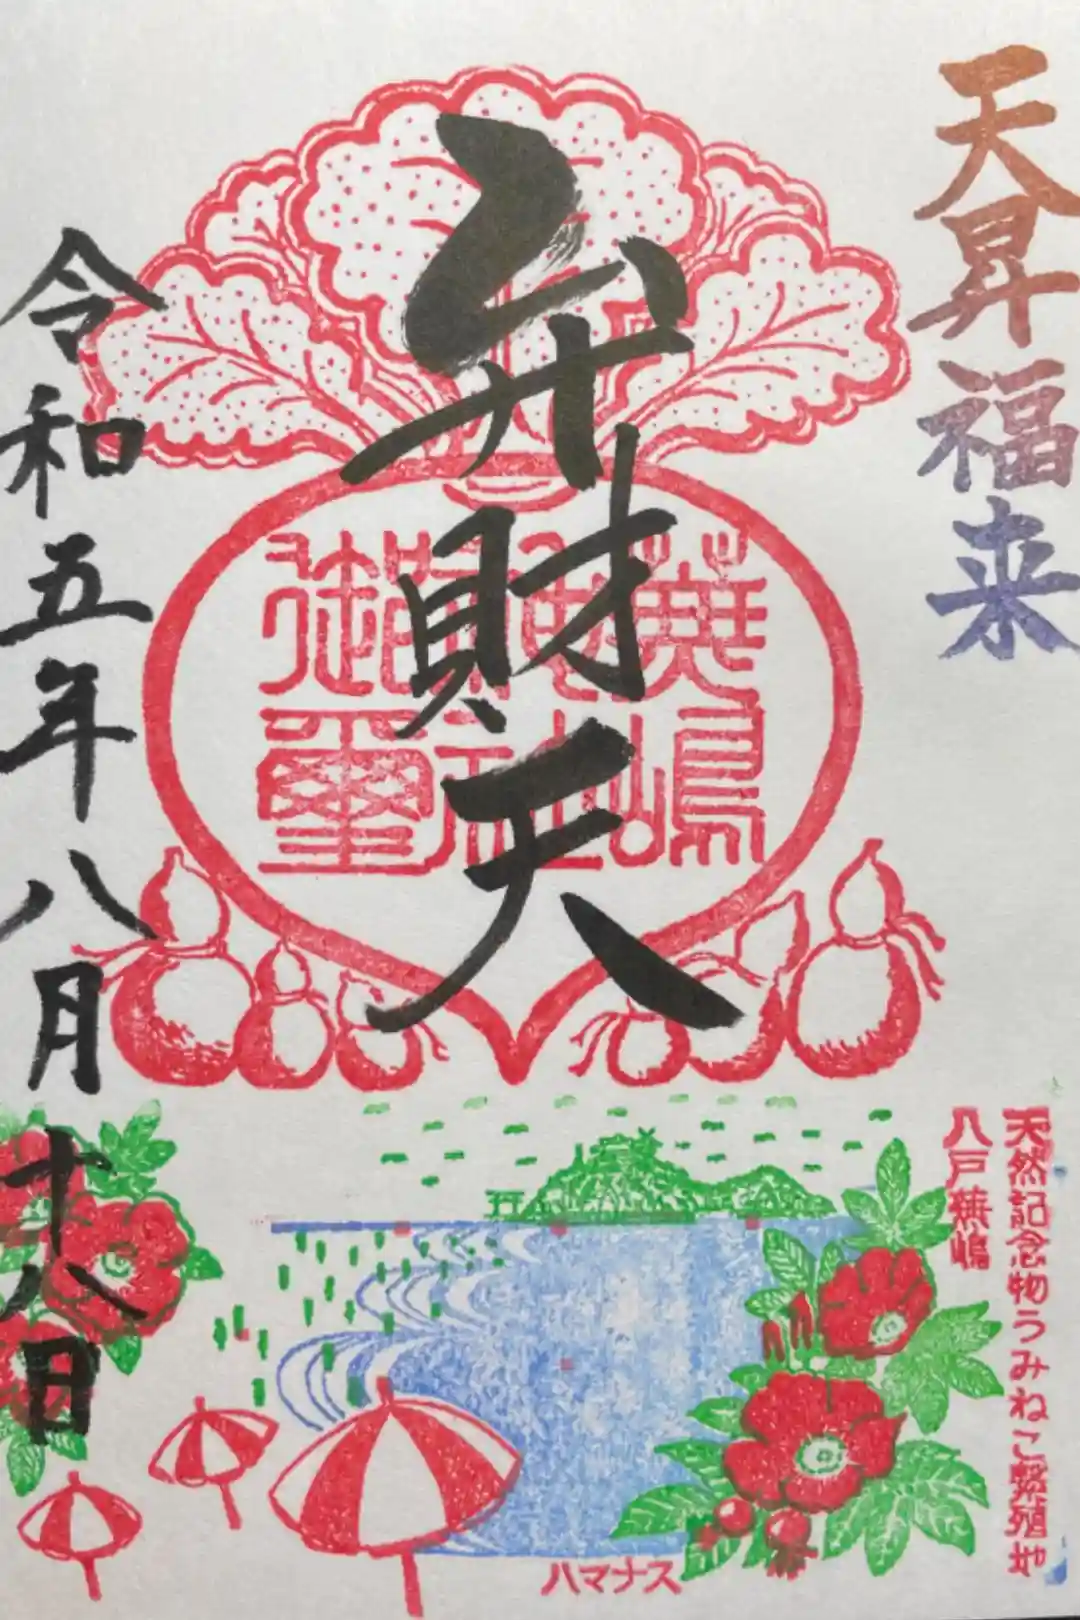 天昇福来
弁財天
蕪嶋神社御璽
令和五年八月十八日
天然記念物うみねこ繁殖地
八戸蕪嶋
ハマナス